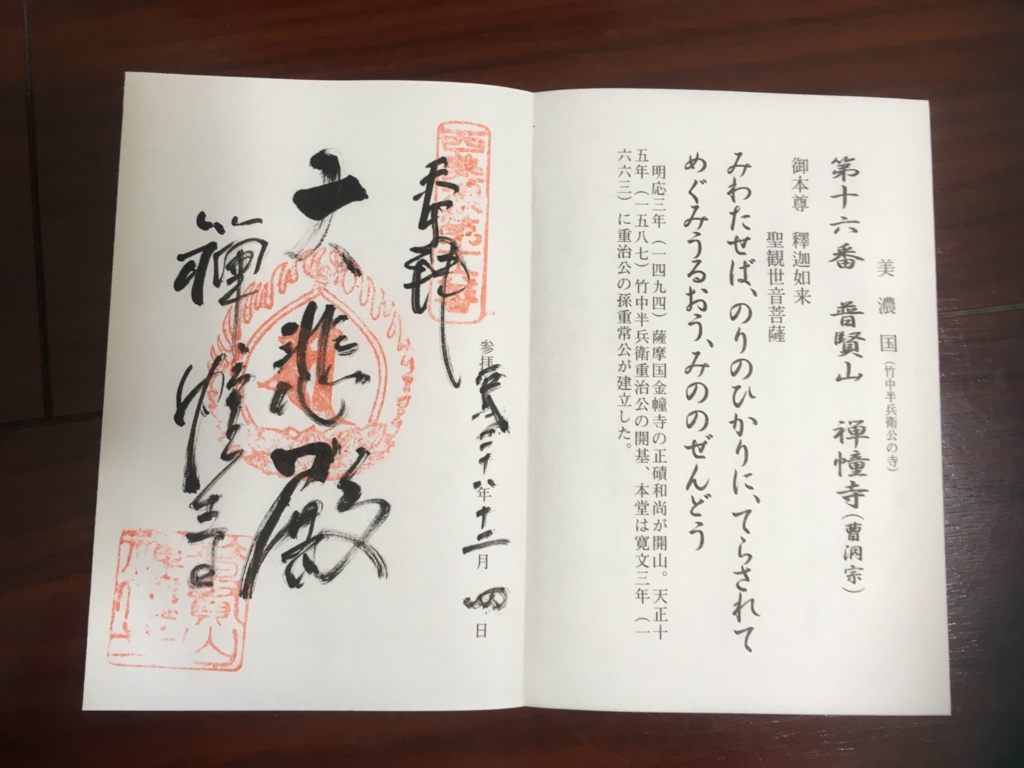 美濃国（竹中半兵衛公の寺）
第十六番　普賢山　禅幢寺（曹洞宗）
御本尊　釋迦如来
聖観世音菩薩
みわたせば、のりのひかりに、てらされて
めぐみうるおう、みののぜんどう
明応三年（一四九四）薩摩国金幢寺の正磧和尚が開山。天正十
五年（一五八七）竹中半兵衛重治公の開基、本堂は寛文三年（一
六六三）に重治公の孫重常公が建立した。
奉拝
参拝平成二十八年十二月四日
大悲殿
禅幢寺